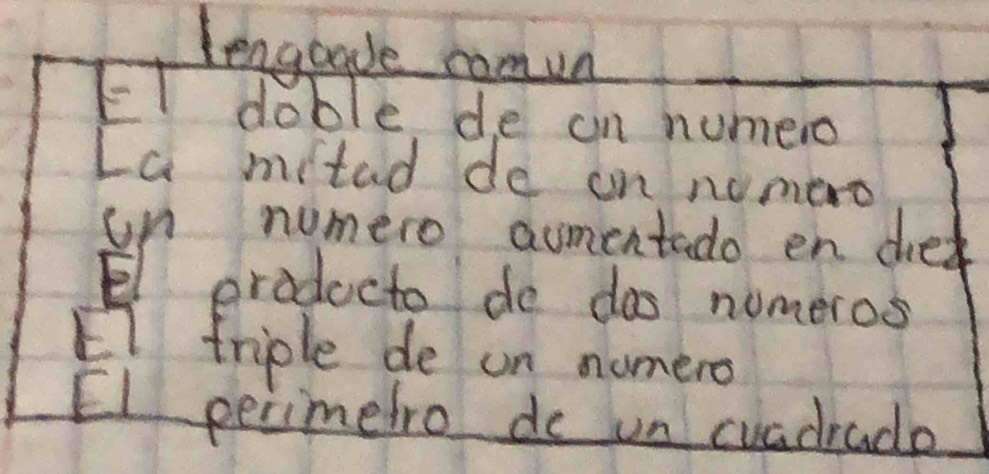 lenguaje comun
El doble de un numero
La mitad de un numero
un numero aumentado en diez
El producto de dos numeros
El triple de un numero
El perimetro de un cuadrado